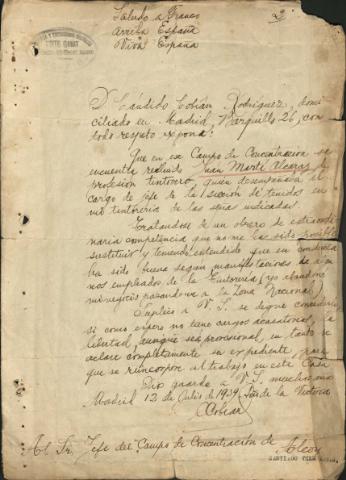 Saludo a Franco
Arriba España
Viva España
D. Cándido Cobián Rodriguez, domi
ciliado en Madrid Barquillo 26, con
todo respeto expone:
Que en ese Campo de Concentración se
encuentra recluido Juan Martí
profesión tintorero, quien desempeñaba el
cargo de jefe de la sección de teñidos en
mi tintorería de las señas indicadas.
Tratándose de un obrero de extraordi
naria competencia que no me ha sido posible
sustituir y teniendo entendido que su conducta
ha sido buena segun manifestaciones de algu
nos empleados de la Tintorería (yo abandoné
mi negocio pasandome a la Zona Nacional)
Suplico a V. S. se digne concederle
si como espero no tiene cargos acusatorios, la
libertad, aunque sea provisional, en tanto se
aclare completamente su expediente, para
que se reincorpore al trabajo en esta Casa
Dios guarde a V. S. muchos años
Madrid 12 de Julio de 1939 Año de la Victoria
Cobian
Al Sr. Jefe del Campo de Concentración de Alcoy